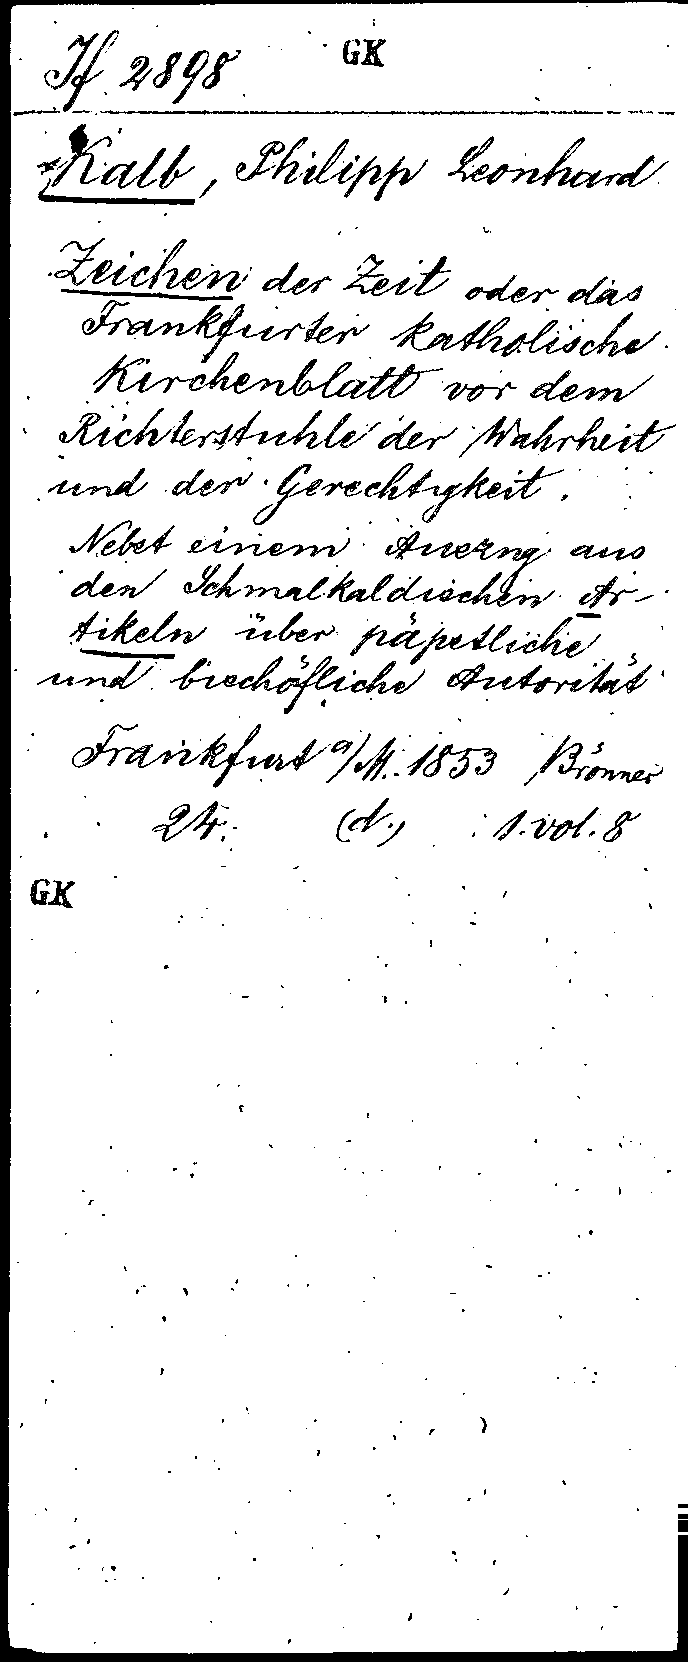 If 2898 GK
Kalb, Philipp Leonhard
Zeichen der Zeit oder das
Frankfurter katholische
Kirchenblatt vor dem
Richterstuhle der Wahrheit
und der Gerechtigkeit.
Nebst einem Auszug aus
den Schmalkaldischen Ar-
tikeln über päpstliche
und bischöfliche Autorität
Frankfurt a/M. 1853 Brönner
24. (d.) 1. vol. 8
GK